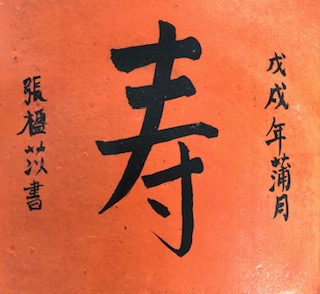 戊戌年蒲月
寿
張苡書